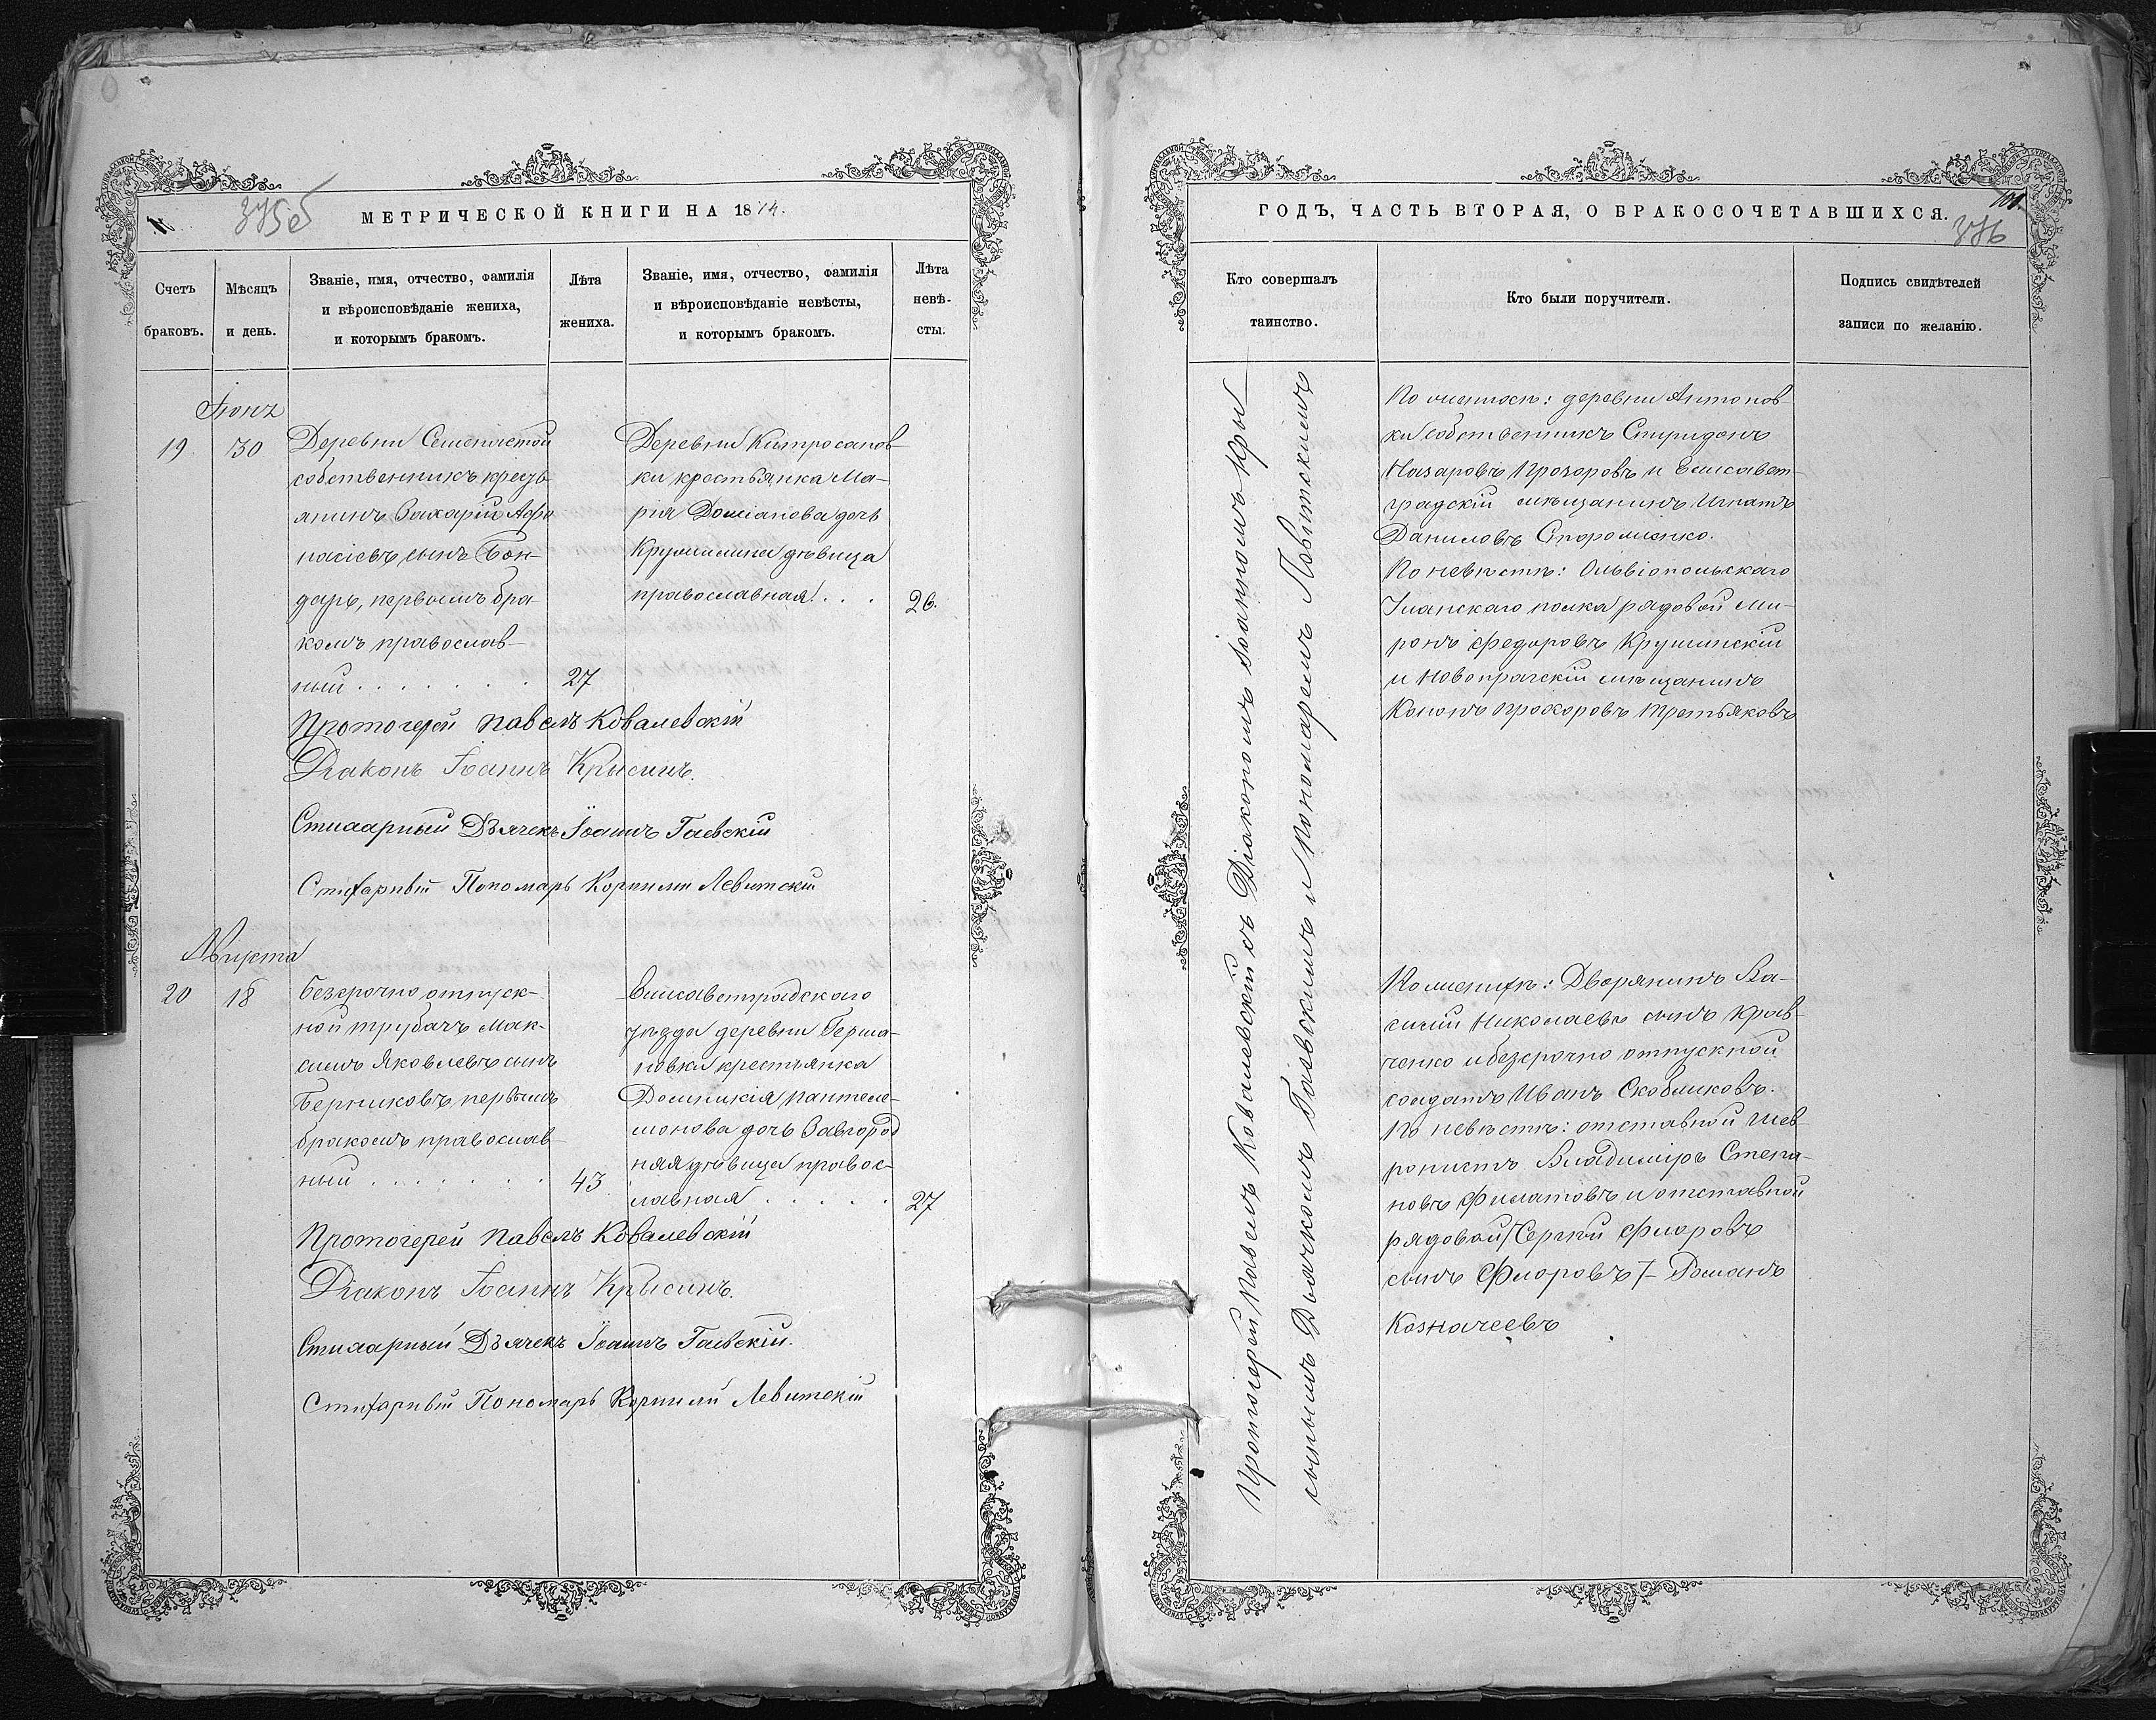 375 об
МЕТРИЧЕСКОЙ КНИГИ НА 1874.
Счетъ браковъ.
Мѣсяцъ и день.
Званіе, имя, отчество, фамилія
и вѣроисповѣданіе жениха,
и которымъ бракомъ.
Лѣта
жениха.
Званіе, имя, отчество, фамилія
и вѣроисповѣданіе невѣсты,
и которымъ бракомъ.
Лѣта
невѣ-
сты.
19
30
Деревни Семенастой
собственникъ кресть
янинъ Захарій Афа
насіевъ сынъ Бон-
дарь, первымъ бра-
комъ православ-
ный . . . . . . .
27
Деревни Китросанов
ки крестьянка Ма-
рія Доміанова дочь
дѣвица
православная . . .
26.
Протоіерей Павелъ Ковалевскій
Діаконъ Іоаннъ Крысинъ.
Стихарный Дьячекъ Іоаннъ Гаевскій
Стихарный Пономарь Корнилій Левитскій
Августа
20
18
безсрочно отпуск-
ной трубачъ Мак-
симъ Яковлевъ сынъ
Берниковъ первымъ
бракомъ православ-
ный . . . . . . .
43
Елисаветградскаго
уѣзда деревни Герма-
новки крестьянка
Домникія Пантеле-
монова дочь Завгород
няя дѣвица правос-
лавная . . . . .
27
Протоіерей Павелъ Ковалевскій
Діаконъ Іоаннъ Крысинъ.
Стихарный Дьячекъ Іоаннъ Гаевскій.
Стихарный Пономарь Корнилій Левитскій
101.
ГОДЪ, ЧАСТЬ ВТОРАЯ, О БРАКОСОЧЕТАВШИХСЯ.
376
Кто совершалъ
таинство.
Кто были поручители.
Подпись свидѣтелей
записи по желанію.
Протоіерей Павелъ Ковалевскій съ Діакономъ Іоанномъ Кры
сынымъ Дьячкомъ Гаевскимъ и Пономаремъ Левитскимъ
По женихѣ: деревни Антонов-
ки собственникъ Спиридонъ
Назаровъ Прозоровъ и Елисавет-
градскій мѣщанинъ Игнатъ
Даниловъ Стороженко.
По невѣстѣ: Ольвіопольскаго
Уланскаго полка рядовой Ми-
ронъ Федоровъ Крушинскій
и Новопражскій мѣщанинъ
Кононъ Прохоровъ Третьяковъ
По женихѣ: Дворянинъ Ва-
силій Николаевъ сынъ Крав-
ченко и безсрочно отпускной
солдатъ Иванъ Скобликовъ.
По невѣстѣ: отставной Шев-
ронистъ Владиміръ Степа-
новъ Филатовъ и отставной
рядовой /Сергѣй Флоровъ
сынъ Флоровъ/ – Романъ
Казначеевъ